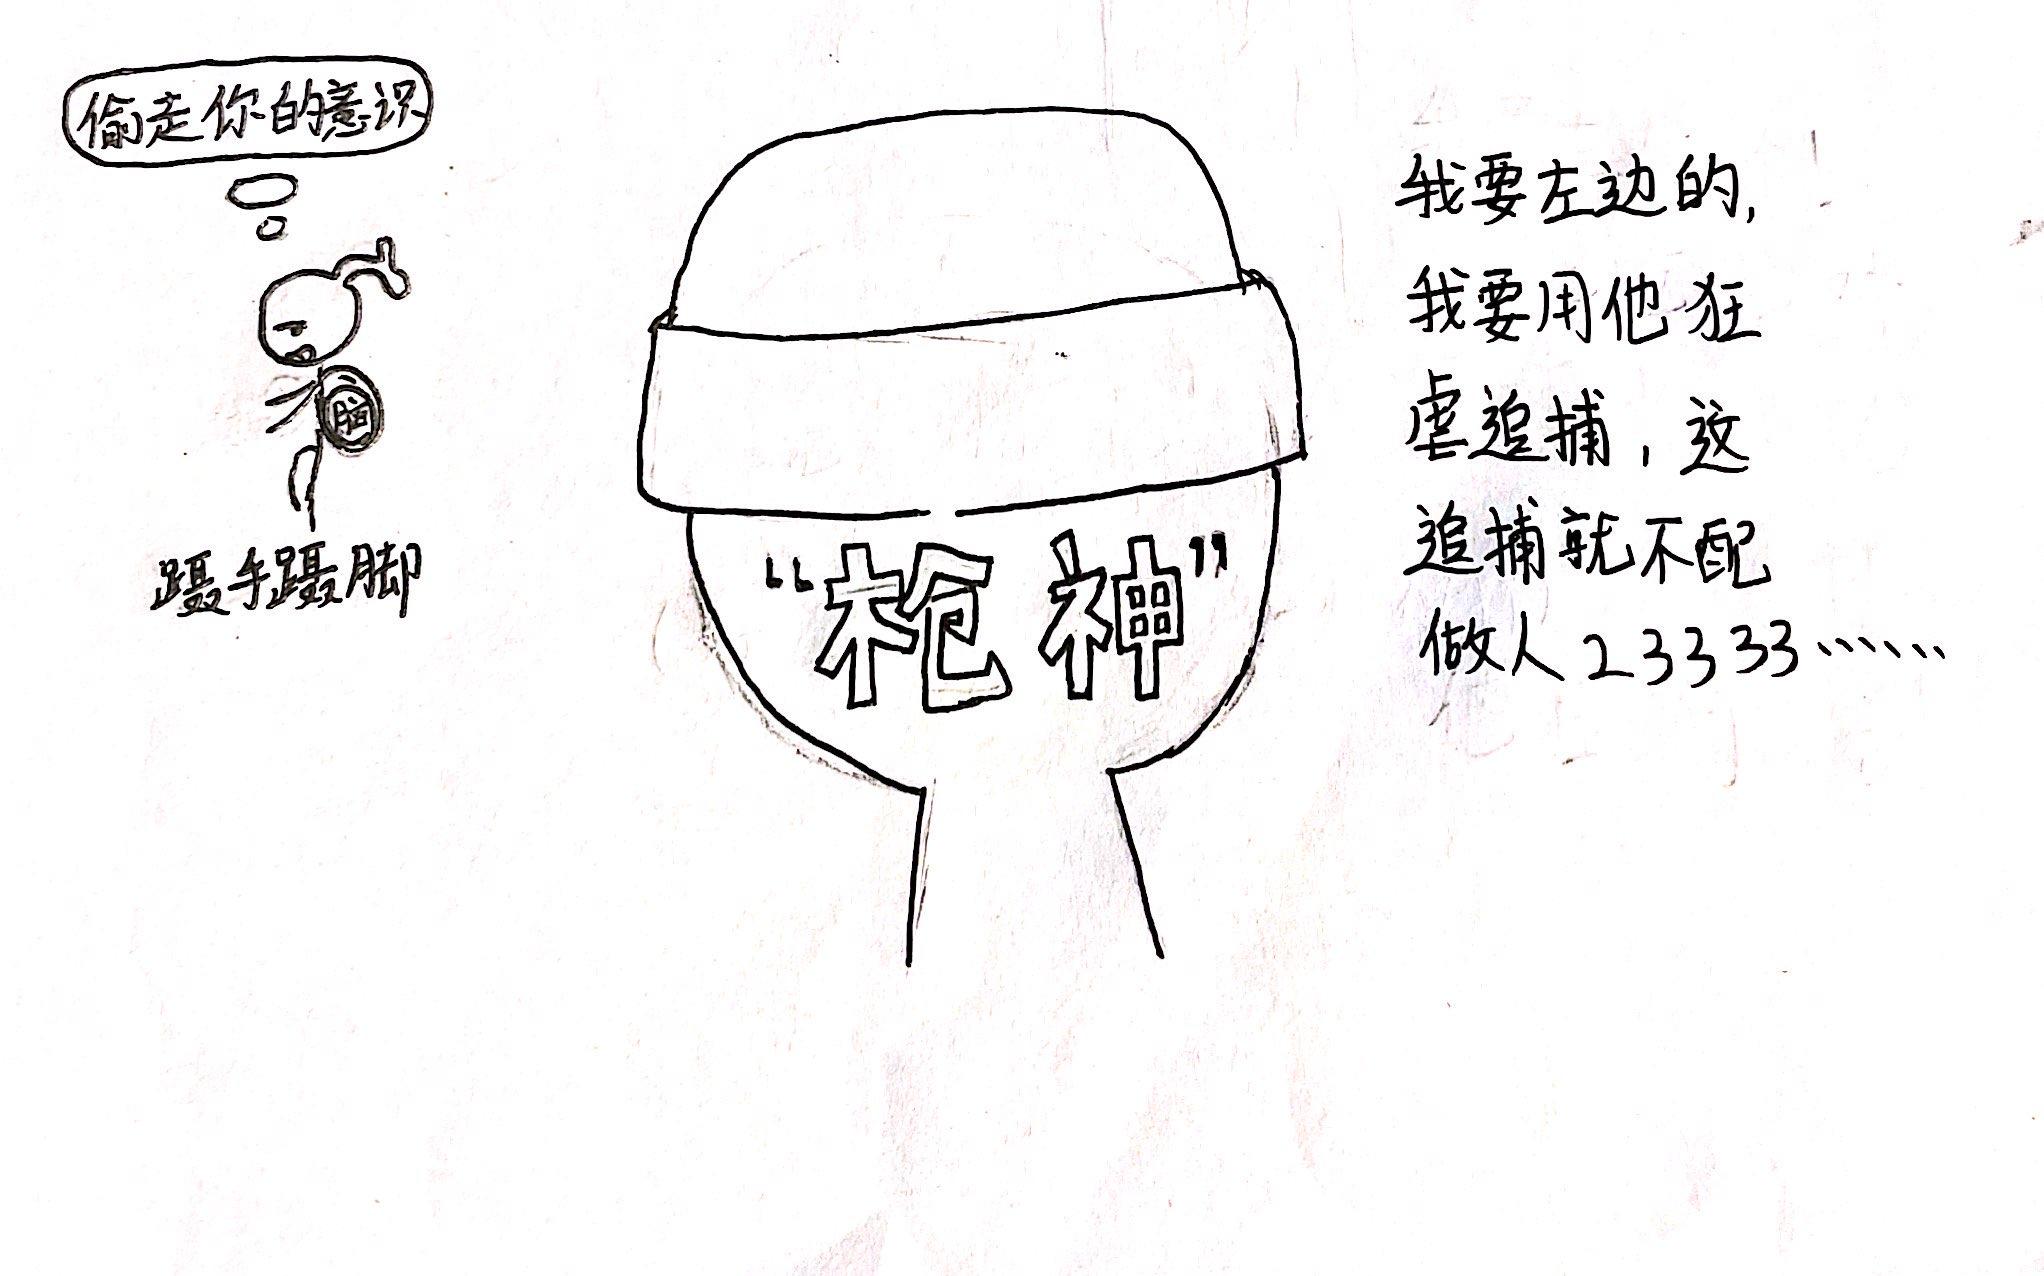 偷走你的意识
脑
蹑手蹑脚
“枪神”
我要左边的，
我要用他狂
虐追捕，这
追捕就不配
做人23333……